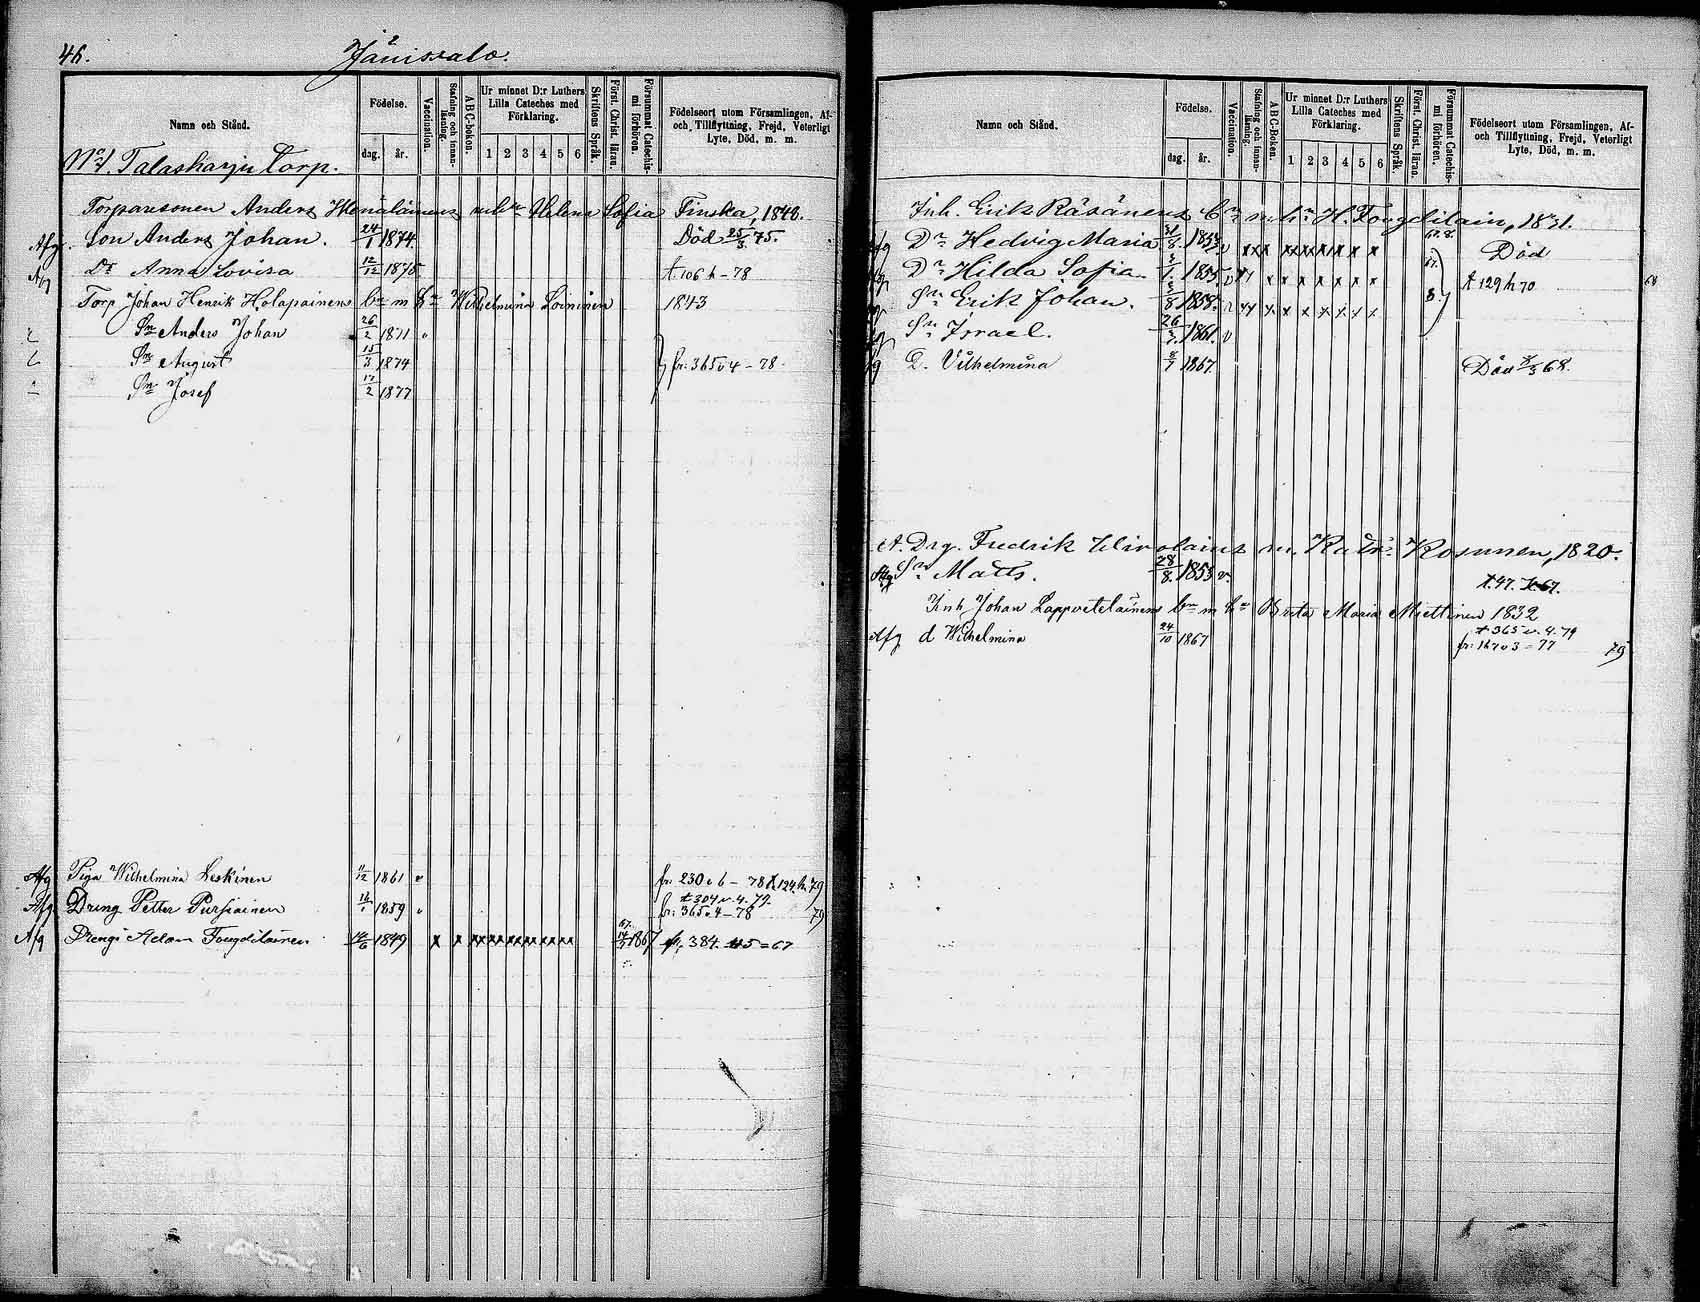 46.
Jänissalo.
Namn och Stånd.
Födelse.
dag. år.
Vaccination.
Stafning och innan-läsning.
ABC-boken.
Ur minnet D:r Luthers Lilla Cateches med Förklaring.
1 2 3 4 5 6
Skriftens Språk.
Först. Christ. läran.
Försummat Catechismi förhören.
Födelseort utom Församlingen, Af- och Tillflyttning, Frejd, Veterligt Lyte, Död, m. m.
No 1. Talasharju Torp.
Torparesonen Anders b:n m. h:n Helena Sofia Finska, 1848.
Afg. Son Anders Johan. 24/1 1874. Död 25/3 75.
Afg Dr Anna Lovisa 12/12 1875 t. 106 h - 78
Torp Johan Henrik Holapainens b:n m h:n Wilhelmina Loininen 1843
Sn Anders Johan 26/2 1871 "
Sn August 15/3 1874 fr: 365 v 4 - 78
Sn Josef 17/2 1877
Afg Piga Wilhelmina Leskinen 11/12 1861 v fr. 230 v 6 - 78 t 124 h. 79
t 304 v. 4. 79.
Afg Dräng Petter Pursiainen 1859 " fr: 365 v 4 - 78 79
Afg Drengi Adam Fougdilainen 1849 x x xx xx xx xx xx xx 67. 1867 fr. 384. 5 = 67
Namn och Stånd.
Födelse.
dag. år.
Vaccination.
Stafning och innan-läsning.
ABC-Boken.
Ur minnet D:r Luthers Lilla Cateches med Förklaring.
1 2 3 4 5 6
Skriftens Språk.
Först. Christ. läran.
Försummat Catechismi förhören.
Födelseort utom Församlingen, Af- och Tillflyttning, Frejd, Veterligt Lyte, Död, m. m.
Inh. Erik Räsänens b:n m. h:n H. Fougdilain, 1831.
Afg Dr Hedvig Maria 31/8. 1853 v xxx xx x x x x x Död
Dr Hilda Sofia. 1855 v x x x x x x x t 129 h 70
Sn Erik Johan. 5/8 1858. xx x x x x x x
Sn Israel. 26 1861. v
D. Vilhelmina 1867. Död 68.
A. Drg. Fredrik m. Katr. Kosunen, 1820.
Afg Sn Matts. 28/8. 1853 v. t. 47. 67.
Inh Johan Lappveteläinens b:n m h:n Brita Maria Miettinen 1832
t 365 v. 4. 79
Afg d Wilhelmina 24/10 1867 fr: 167 v 3 = 77 79